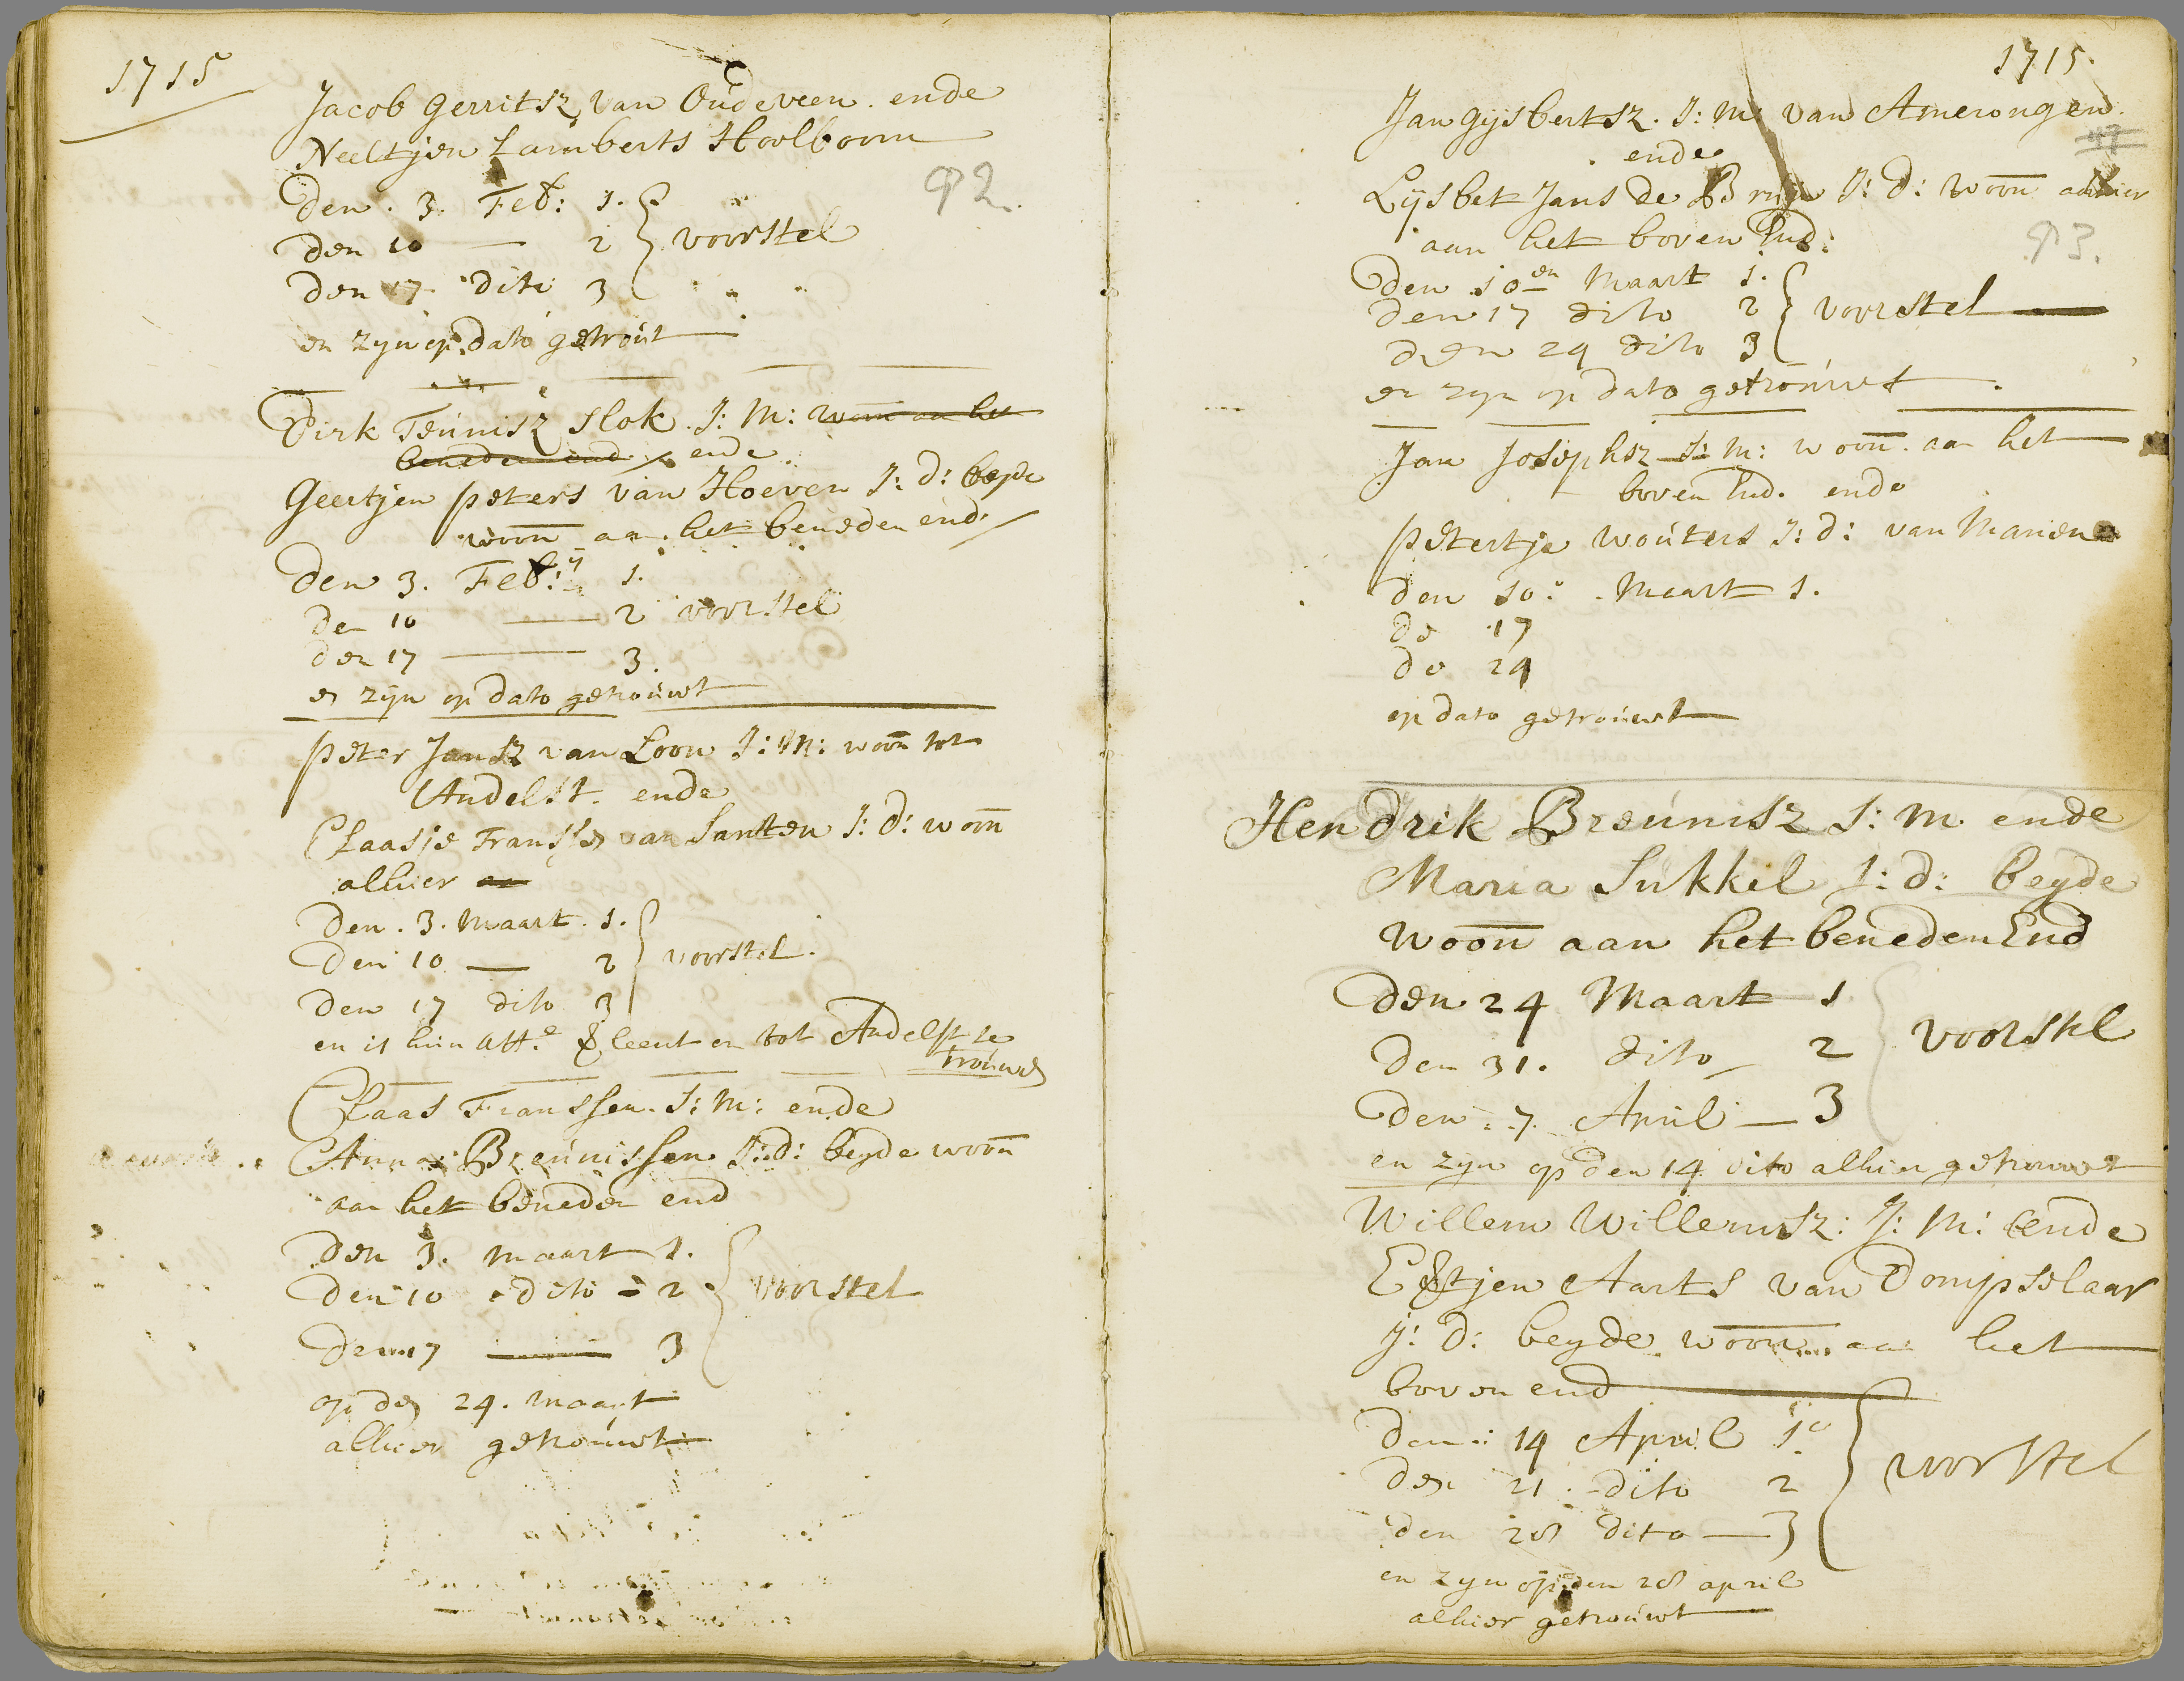 1715
Jacob Gerritsz van Oudeveen. ende
Neeltjen Lamberts Hoolboom
92.
Den. 3. Feb: 1.
den 10 — 2 } voorstel
den 17 dito 3
en zijn op dato getrout
Dirk Teunisz Slok. J: M: woon aan het
beneden end ende
Geertjen Peters van Hoeven J: d: beyde
woon aan het beneden end
den 3. Feb: 1.
den 10 — 2 voorstel
den 17 — 3.
en zijn op dato getrouwt
Peter Jansz van Loon J: M: woon tot
Andelst. ende
Claasje Franssen van Santen J: d: woon
alhier aan
Den. 3. Maart. 1.
Den 10 — 2 } voorstel.
Den 17 dito 3
en is hun att.e verleent om tot Andelst te
trouwen
Claas Franssen. J: M: ende
Anna Breunissen J: d: beyde woon
aan het beneden end
den 3. maart 1.
den 10 dito - 2 } voorstel
den 17 — 3
op den 24. maart
alhier getrouwt
1715.
Jan Gijsbertsz. J: M: van Amerongen.
ende
Lijsbet Jans de Bruijn J: d: woon alhier
aan het boven End:
93.
den 10en Maart 1.
den 17 dito 2 } voorstel
den 24 dito 3
en zijn op dato getrouwt
Jan Josephsz J: M: woon. aan het
boven End. ende
Petertje Wouters J: d: van Manen
den 10: Maart 1.
de 17
de 24
op dato getrouwt
Hendrik Breunisz J: M. ende
Maria Sukkel J: d: beyde
woon aan het beneden End
den 24 Maart 1
den 31. dito 2 } voorstel
den 7 April — 3
en zijn op den 14 dito alhier getrouwt
Willem Willemsz: J: M: ende
Efjen Aarts van Dompselaar
J: d: beyde woon aan het
boven end
den: 14 April 1e
den 21. dito 2 } voorstel
den 28 dito — 3
en zijn op den 28 april
alhier getrouwt